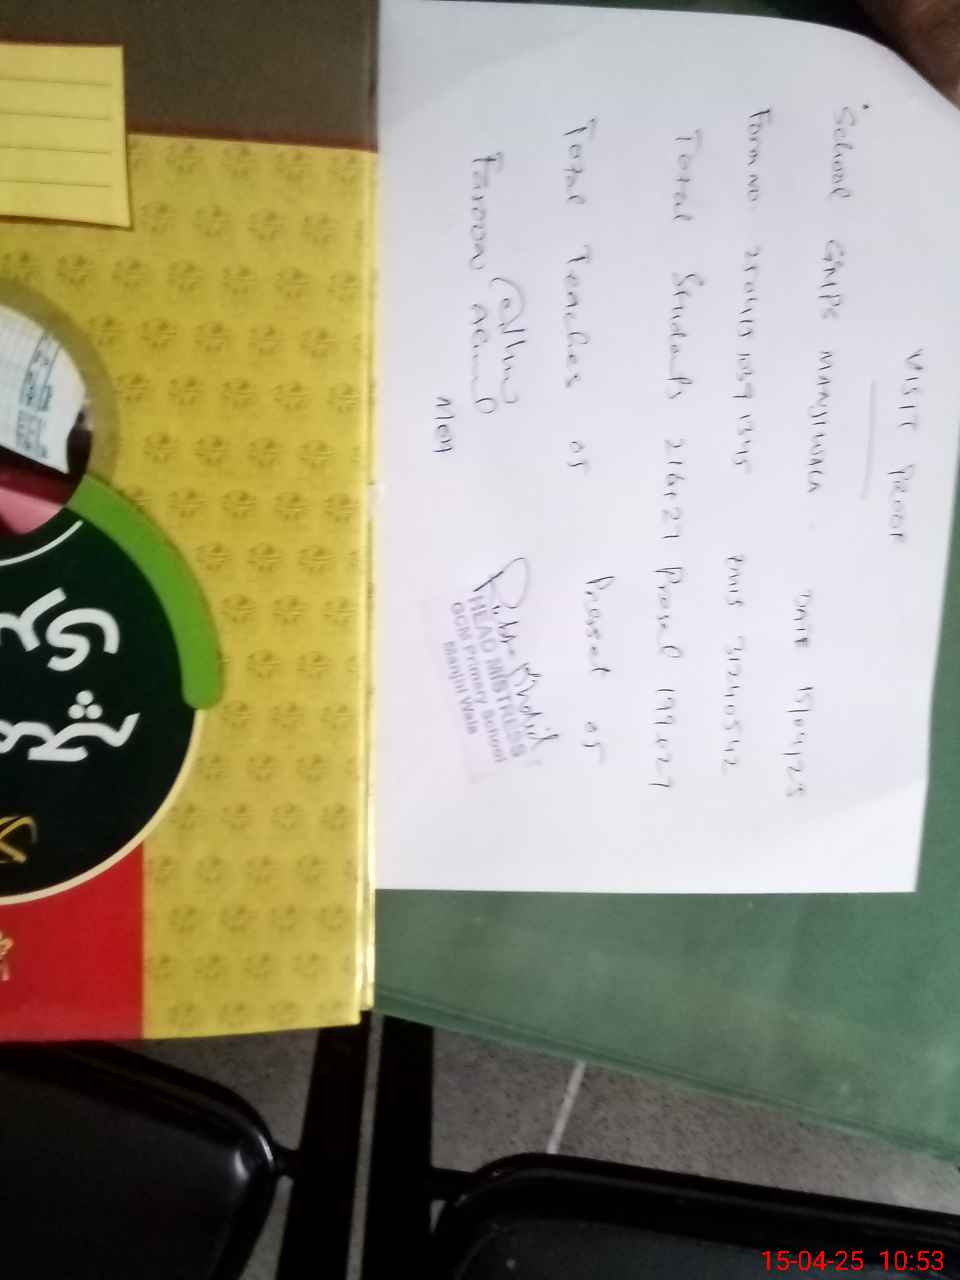 VISIT PROOF
School GMPS MANJIWALA. DATE 15/04/25
Form no. EMIS 31240542
Total Students 216+27 Present 199+27
Total Teaches 05 Present 05
Farooq Ahmad
MEA
HEAD MISTRESS
GCM Primary School
Manjhi Wala
15-04-25 10:53